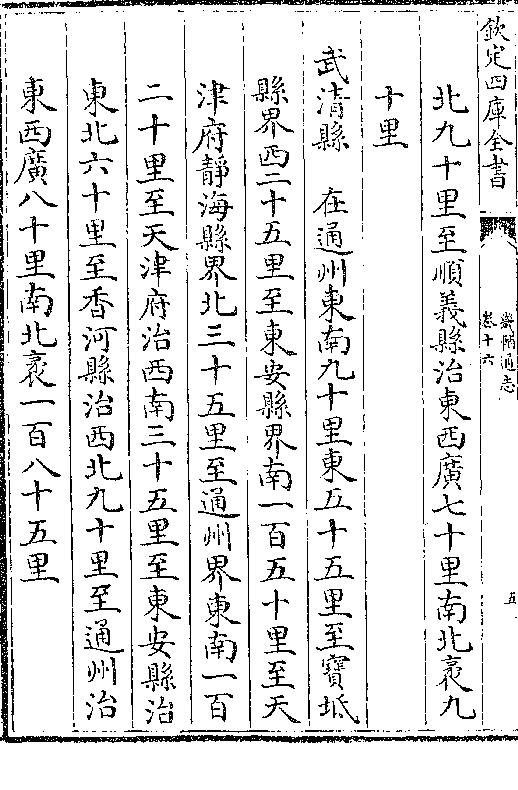 欽定四庫全書
畿輔通志
卷十六
五
北九十里至順義縣治東西廣七十里南北袤九
十里
武清縣　在通州東南九十里東五十五里至寶坻
縣界西二十五里至東安縣界南一百五十里至天
津府靜海縣界北三十五里至通州界東南一百
二十里至天津府治西南三十五里至東安縣治
東北六十里至香河縣治西北九十里至通州治
東西廣八十里南北袤一百八十五里